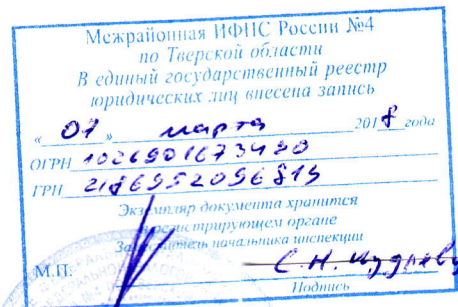 Межрайонная ИФНС России №4
по Тверской области
В единый государственный реестр
юридических лиц внесена запись
«07» марта 2018 года
ОГРН 1026901673490
ГРН 2186952096819
Экземпляр документа хранится
в регистрирующем органе
Заместитель начальника инспекции
М.П.
С.Н.
Подпись